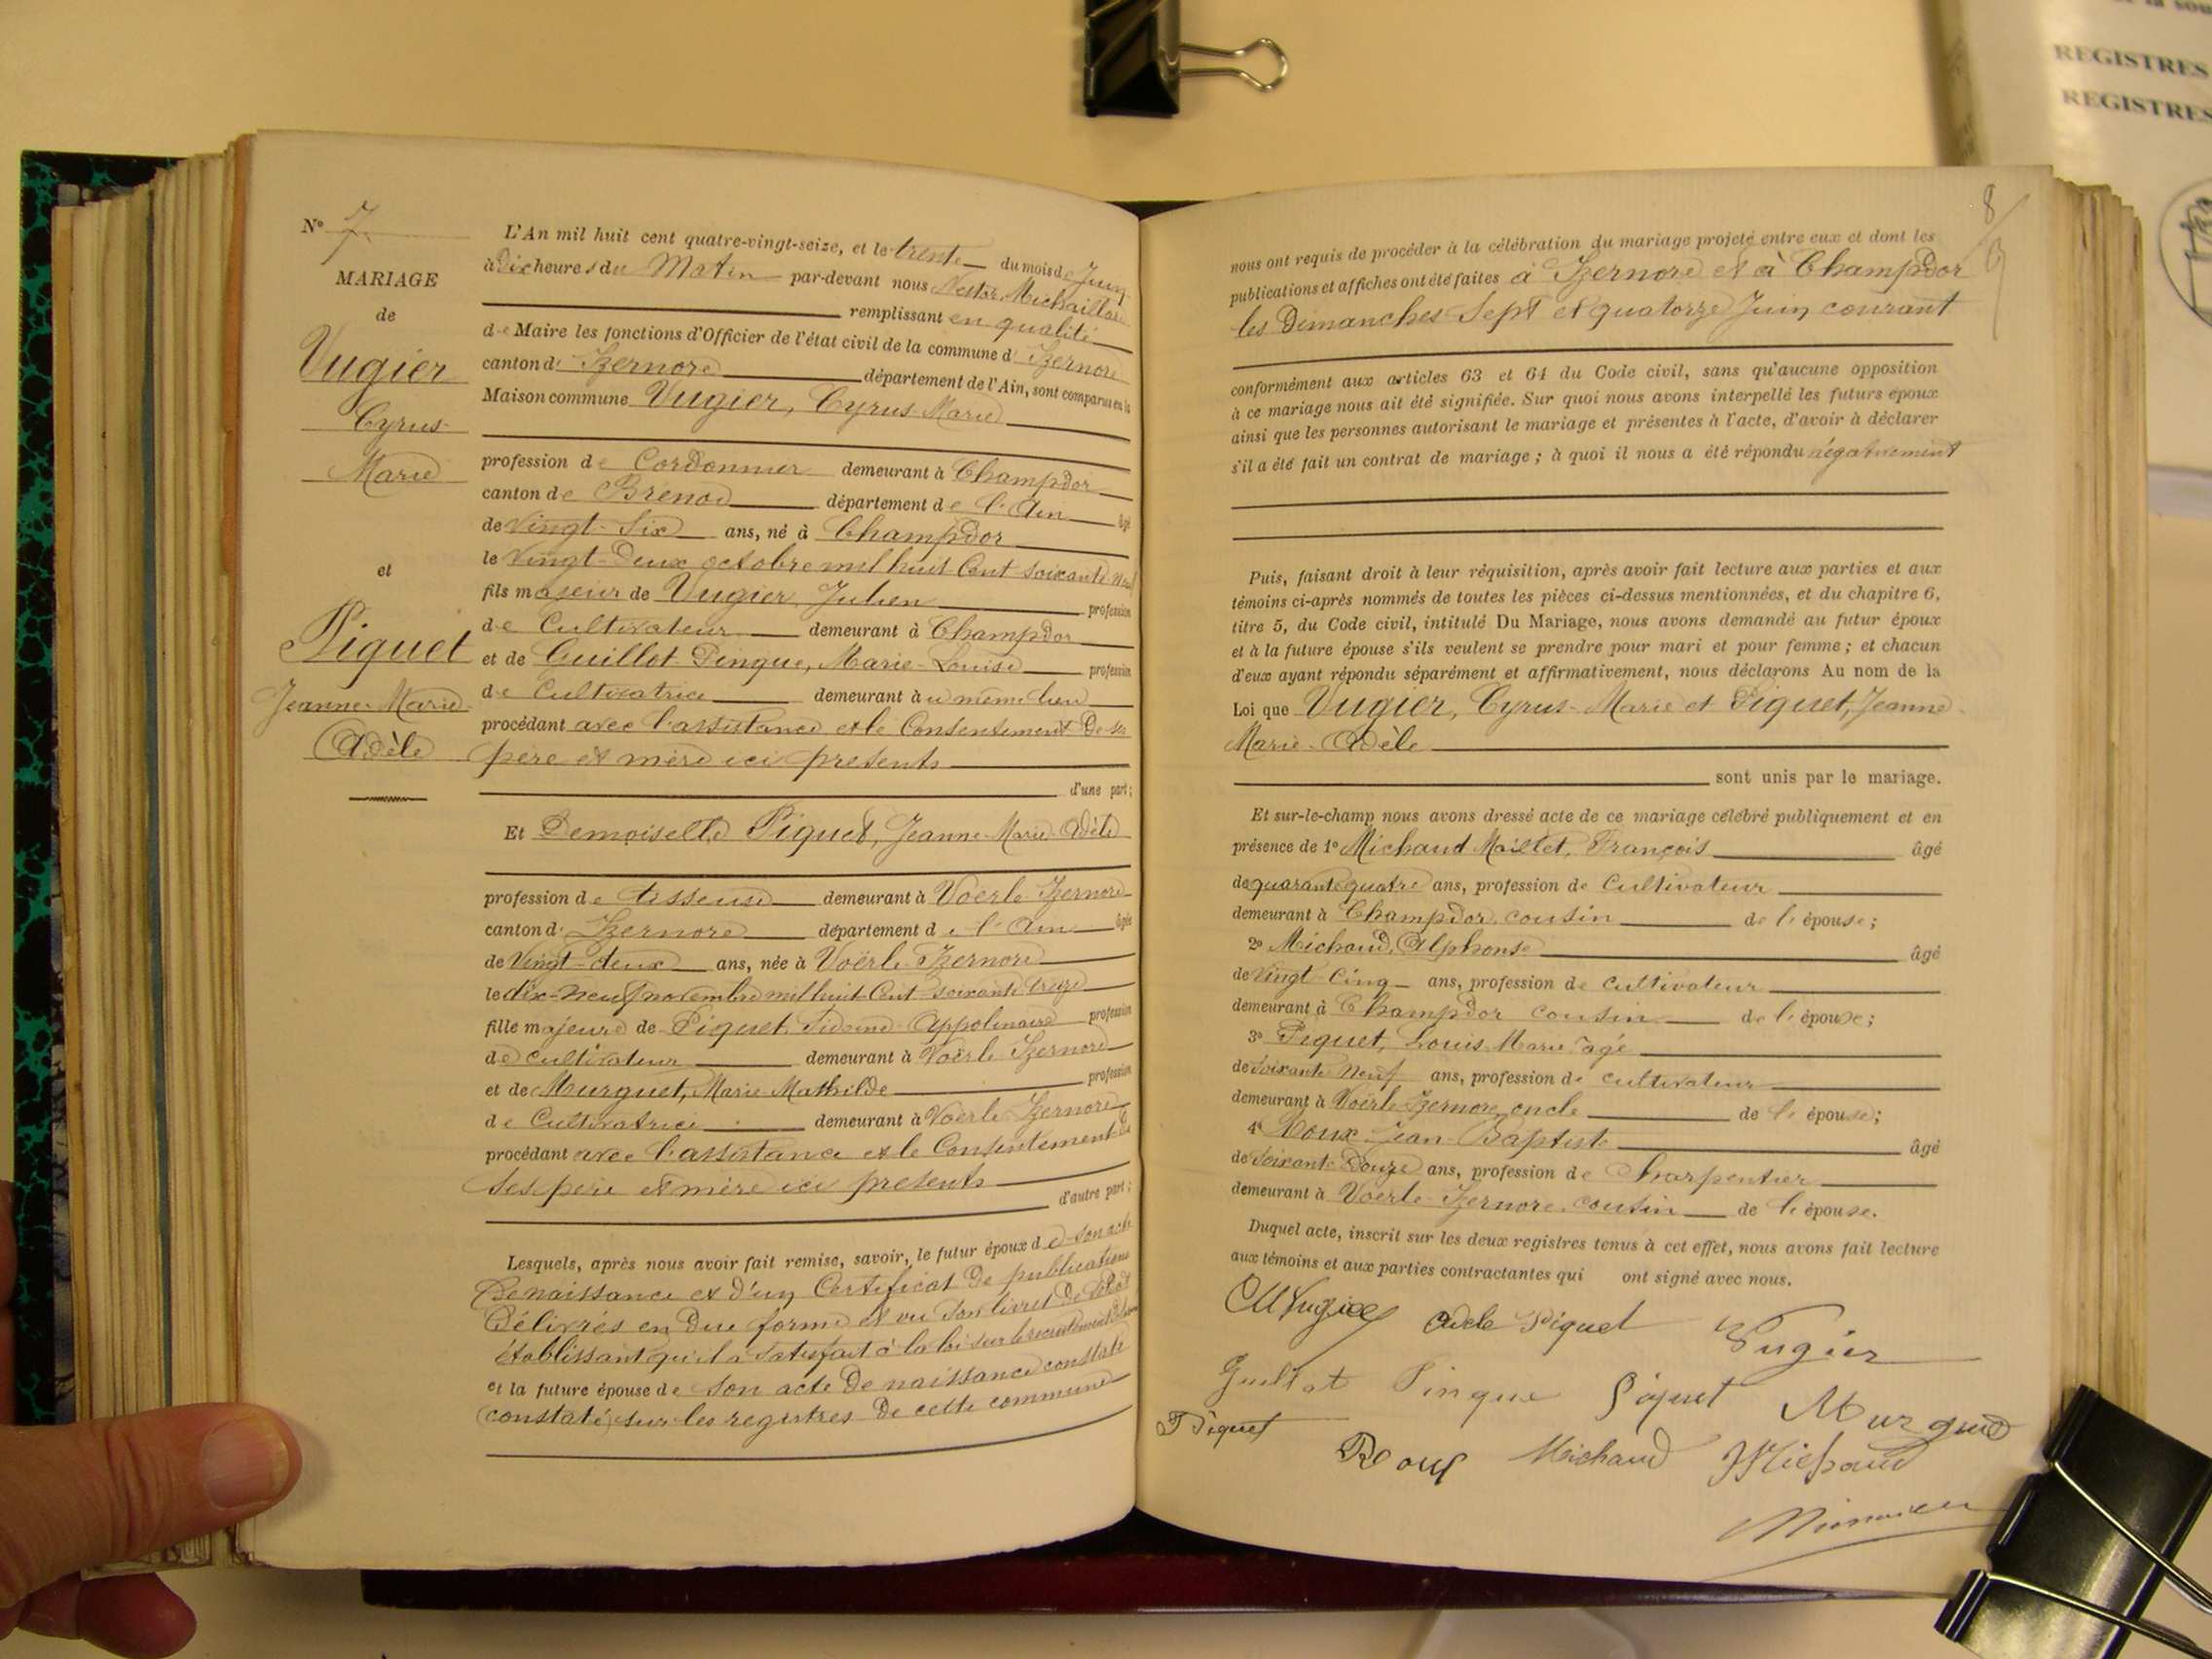 N° 7
MARIAGE
de
Vugier
Cyrus
Marie
et
Piquet
Jeanne-Marie
Adèle
L'An mil huit cent quatre-vingt-seize, et le trente du mois de Juin
à Dix heures du Matin par-devant nous Nestor Michaillard
remplissant en qualité
de Maire les fonctions d'Officier de l'état civil de la commune d'Izernore
canton d'Izernore département de l'Ain, sont comparus en la
Maison commune Vugier, Cyrus Marie
profession de Cordonnier demeurant à Champdor
canton de Brénod département de l'Ain âgé
de Vingt-Six ans, né à Champdor
le Vingt-Deux octobre mil huit Cent soixante neuf
fils majeur de Vugier Julien profession
de Cultivateur demeurant à Champdor
et de Guillot Pingue, Marie-Louise profession
de Cultivatrice demeurant au même lieu
procédant avec l'assistance et le Consentement De ses
père et mère ici présents
d'une part;
Et Demoiselle Piquet, Jeanne-Marie-Adèle
profession de tisseuse demeurant à Voërle Izernore
canton d'Izernore département de l'Ain âgée
de Vingt-deux ans, née à Voërle Izernore
le dix-neuf novembre mil huit Cent soixante treize
fille majeure de Piquet, Sidoine Appolinaire profession
de cultivateur demeurant à Voërle Izernore
et de Murguet, Marie Mathilde profession
de Cultivatrice demeurant à Voërle Izernore
procédant avec l'assistance et le Consentement de
ses père et mère ici présents
d'autre part;
Lesquels, après nous avoir fait remise, savoir, le futur époux de son acte
De naissance et d'un Certificat De publications
Délivrés en Due forme et vu son livret De
établissant qu'il a satisfait à la loi sur le recrutement
et la future épouse de son acte De naissance constaté
constaté sur les registres De cette commune
8
nous ont requis de procéder à la célébration du mariage projeté entre eux et dont les
publications et affiches ont été faites à Izernore et à Champdor
les Dimanches Sept et quatorze Juin courant
conformément aux articles 63 et 64 du Code civil, sans qu'aucune opposition
à ce mariage nous ait été signifiée. Sur quoi nous avons interpellé les futurs époux
ainsi que les personnes autorisant le mariage et présentes à l'acte, d'avoir à déclarer
s'il a été fait un contrat de mariage; à quoi il nous a été répondu négativement
Puis, faisant droit à leur réquisition, après avoir fait lecture aux parties et aux
témoins ci-après nommés de toutes les pièces ci-dessus mentionnées, et du chapitre 6,
titre 5, du Code civil, intitulé Du Mariage, nous avons demandé au futur époux
et à la future épouse s'ils veulent se prendre pour mari et pour femme; et chacun
d'eux ayant répondu séparément et affirmativement, nous déclarons Au nom de la
Loi que Vugier, Cyrus-Marie et Piquet, Jeanne-
Marie-Adèle
sont unis par le mariage.
Et sur-le-champ nous avons dressé acte de ce mariage célébré publiquement et en
présence de 1° Michaud Maillet, François âgé
de quarante quatre ans, profession de Cultivateur
demeurant à Champdor, cousin de l'épouse;
2° Michaud, Alphonse âgé
de Vingt-Cinq ans, profession de cultivateur
demeurant à Champdor cousin de l'épouse;
3° Piquet, Louis Marie âgé
de soixante Neuf ans, profession de cultivateur
demeurant à Voërle Izernore, oncle de l'épouse;
4° Roux Jean-Baptiste âgé
de soixante Douze ans, profession de Charpentier
demeurant à Voërle Izernore, cousin de l'épouse.
Duquel acte, inscrit sur les deux registres tenus à cet effet, nous avons fait lecture
aux témoins et aux parties contractantes qui ont signé avec nous.
CM Vugier Adèle Piquet Vugier
Guillot Pingue Piquet Murguet
Piquet Roux Michaud Michaud
REGISTRES
REGISTRES